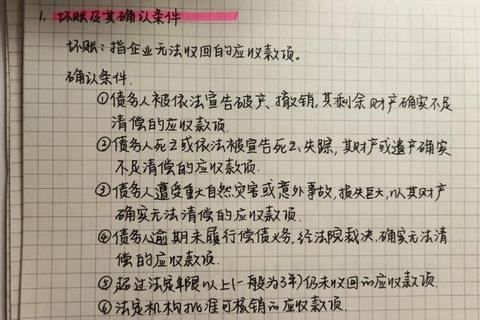 1. 坏账及其确认条件
坏账：指企业无法收回的应收款项。
确认条件.
①债务人被依法宣告破产、撤销,其剩余财产确实不足
清偿的应收款项.
②债务人死亡或依法被宣告死亡、失踪,其财产或遗产确实
不足清偿的应收款项.
③债务人遭受重大自然灾害或意外事故,损失巨大,以其财产
确实无法清偿的应收款项.
④债务人逾期未履行偿债义务,经法院裁决,确实无法清
偿的应收款项.
⑤超过法定年限以上(一般为3年)仍未收回的应收款项.
⑥法定机构批准可核销的应收款项.